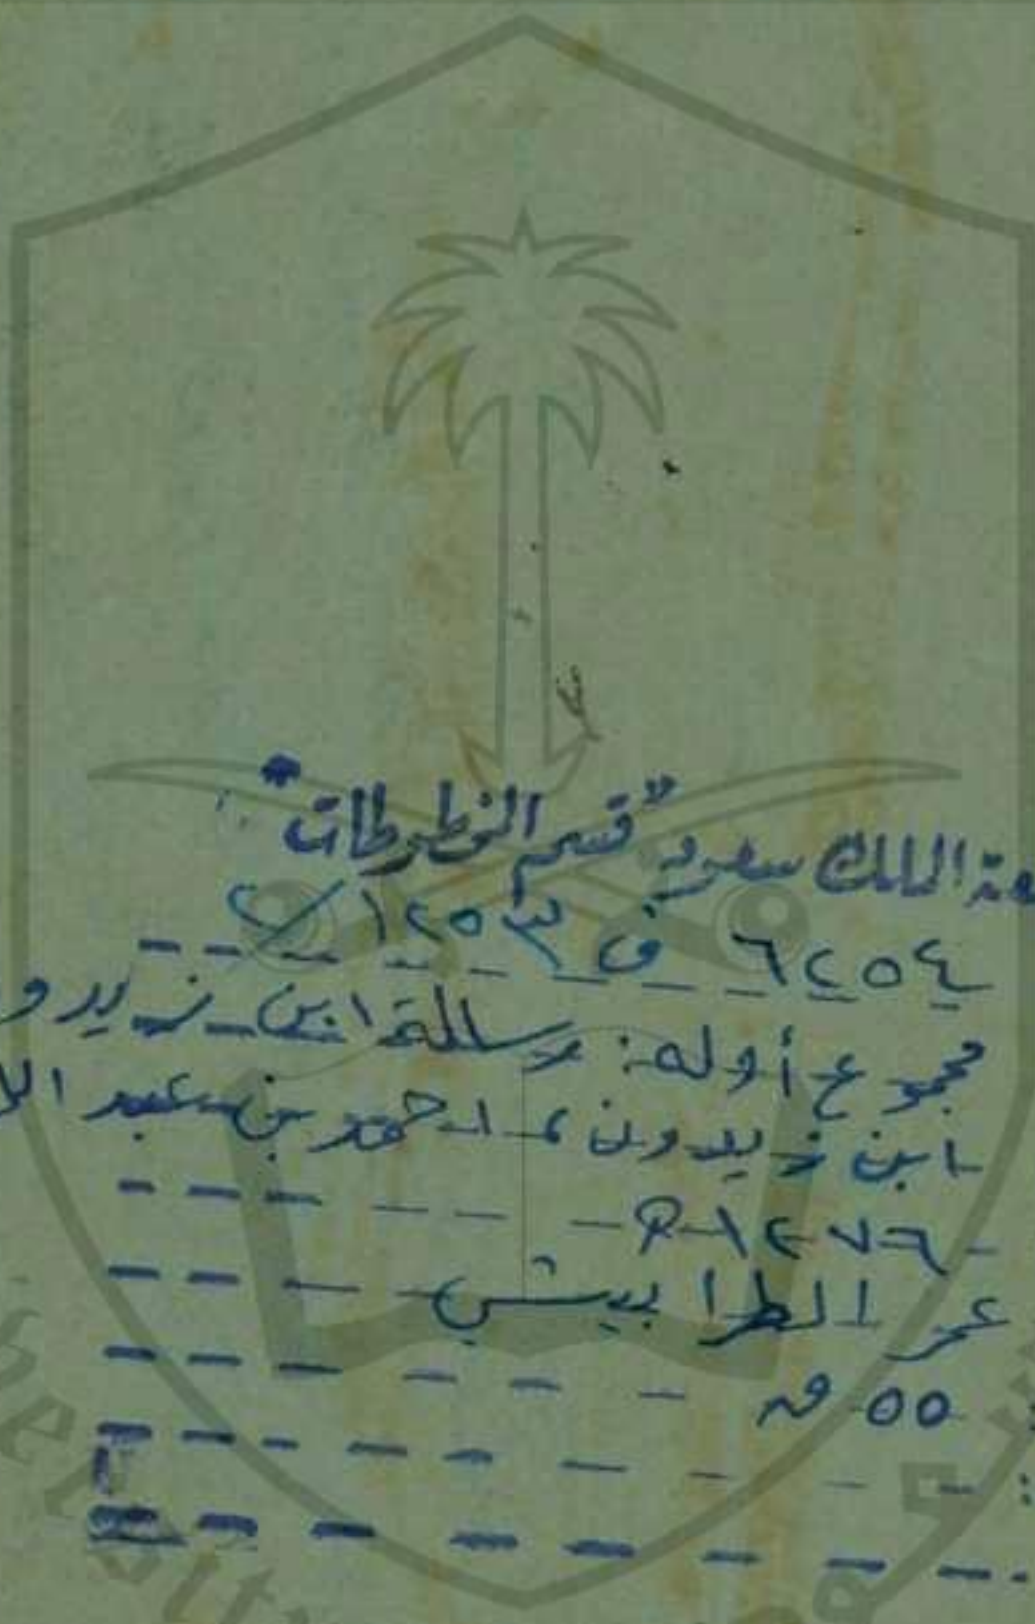 الملك سعود "قسم المخطوطات"
٦٢٥٤ ف ١٢٥٣/٢
مجموع أوله: رسالة ابن زيدو
ابن زيدون، احمد بن عبد ال
١٢٧٦ هـ
عمر الطرابيشي
٥٥ ق